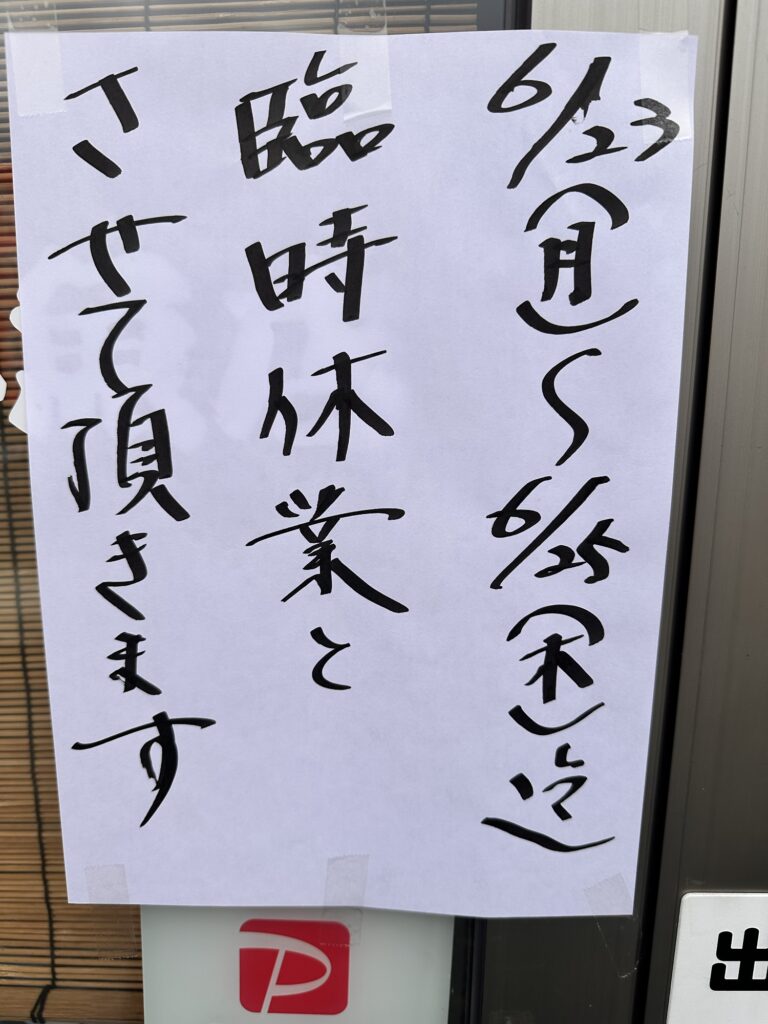 6/23(月)〜6/25(木)迄
臨時休業と
させて頂きます
P
出